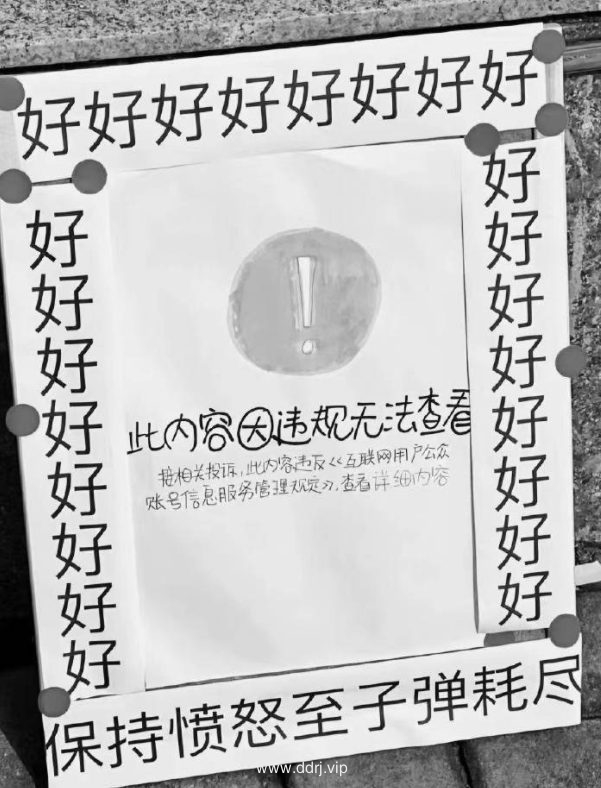 好好好好好好好好
好好好好好好好好
此内容因违规无法查看
接相关投诉,此内容违反<<互联网用户公众
账号信息服务管理规定>>,查看详细内容
好好好好好好好好
保持愤怒至子弹耗尽
www.ddrj.vip